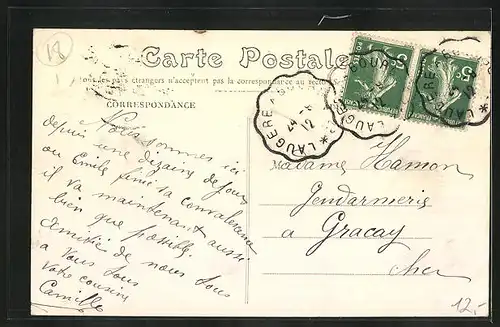 18
Carte Postale
Tous les pays étrangers n'acceptent pas la correspondance au recto
CORRESPONDANCE
Nous sommes ici
depuis une dizaine de jours
ou Emile finit sa convalescence
il va maintenant aussi
bien que possible.
Amitié de nous tous
a Vous tous
votre cousin
Camille
LAUGERE A BOURG
24 - 6
12
5c
5c
Madame Hamon
Gendarmerie
a Graçay
Cher
12.-